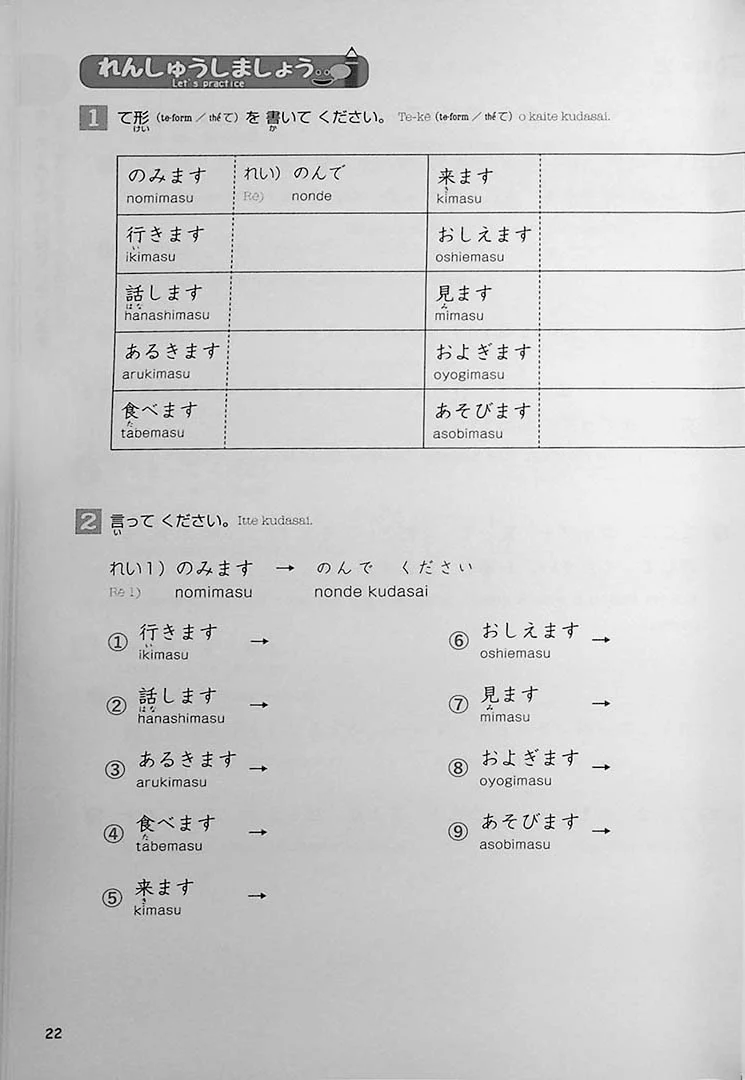 れんしゅうしましょう
Let's practice
1 て形 (te-form／théて) を 書いて ください。 Te-kē (te-form／théて) o kaite kudasai.
けい か
のみます れい) のんで 来ます
き
nomimasu Rē) nonde kimasu
行きます おしえます
い
ikimasu oshiemasu
話します 見ます
はな み
hanashimasu mimasu
あるきます およぎます
arukimasu oyogimasu
食べます あそびます
た
tabemasu asobimasu
2 言って ください。 Itte kudasai.
い
れい1) のみます → のんで ください
Rē 1) nomimasu nonde kudasai
① 行きます →
い
ikimasu
② 話します →
はな
hanashimasu
③ あるきます →
arukimasu
④ 食べます →
た
tabemasu
⑤ 来ます →
き
kimasu
⑥ おしえます →
oshiemasu
⑦ 見ます →
み
mimasu
⑧ およぎます →
oyogimasu
⑨ あそびます →
asobimasu
22